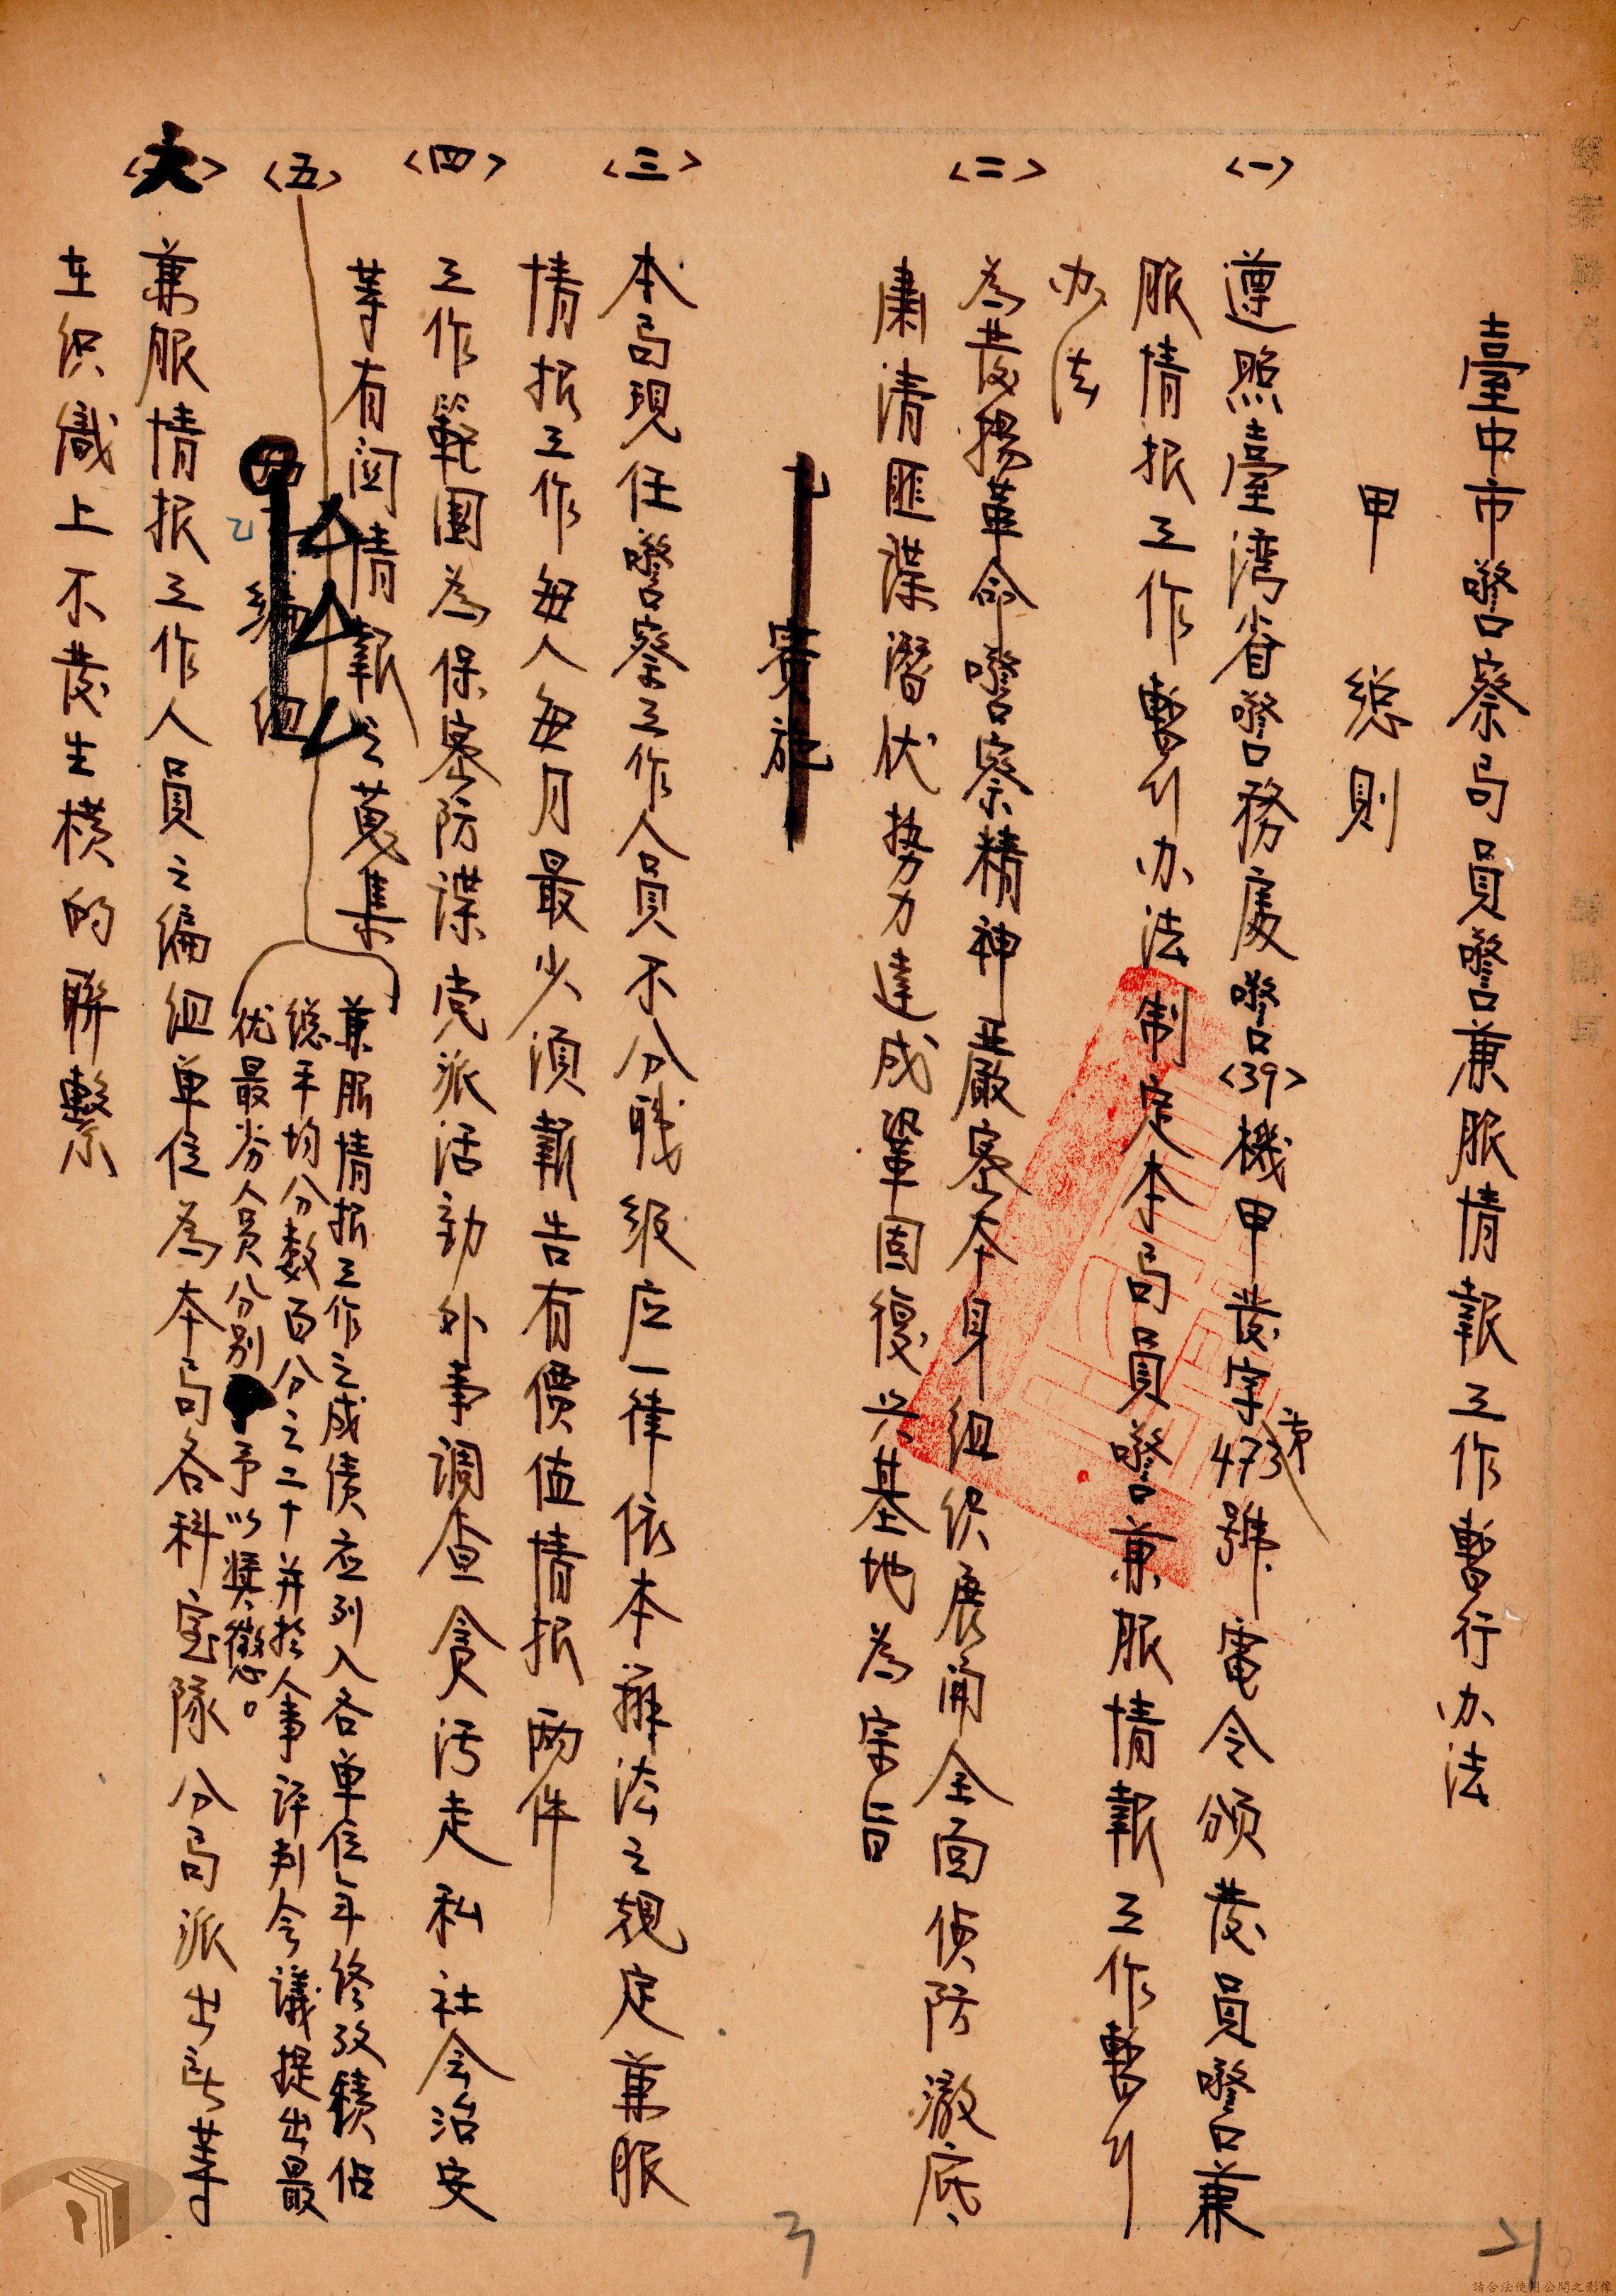 臺中市警察局員警兼服情報工作暫行办法
甲 總則
〈一〉遵照臺湾省警務處警〈39〉機甲发字第473號電令頒发員警兼
服情报工作暫行办法制定本局員警兼服情報工作暫行
办法
〈二〉為发揚革命警察精神严嚴密本身組织展開全面侦防澈底
肅清匪諜潛伏势力達成鞏固復兴基地為宗旨
乙 實施
〈三〉本局現任警察工作人員不分职級应一律依本辦法之規定兼服
情报工作每人每月最少須報告有價值情报两件
〈四〉工作範圍為保密防諜党派活动外事調查貪污走私社会治安
等有関情報之蒐集
〈五〉兼服情报工作之成绩应列入各单位年终攷績佔
總平均分数百分之二十并於人事评判会議提出最
优最劣人員分别予以奬懲。
乙 編組
兼服情报工作人員之编组单位為本局各科室隊分局派出所等
在织織上不发生横的聯繫
3
请合法使用公開之影像